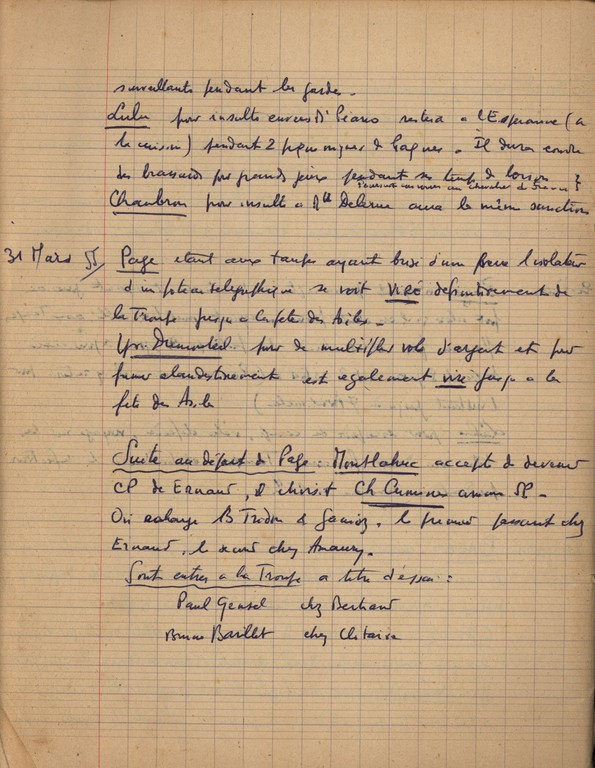 surveillants pendant les gardes.
Lulu pour insulte envers Mr Pears restera a l'Esperance (a
la cuisine) pendant 2 pique niques de Pagnes. Il devra coudre
des brassards pour grands jeux pendant ses temps de loisir
Chambron pour insulte a Mlle Delerue aura la même sanction
31 Mars 55 Page etant aux taupes ayant brisé d'une pierre l'isolateur
d'un poteau telegraphique se voit VIRE definitivement de
la Troupe jusqu'a la fete des Ailes.
Yvo Dremontel pour de multiples vols d'argent et pour
fumer clandestinement est egalement viré jusqu'a la
fete des Ailes
Suite au départ de Page : Montlahuc accepte de devenir
CP de Ernaud, il choisit Ch Cumin comme SP.
On echange B Tredon & Gamioz, le premier passant chez
Ernaud, le second chez Amaury.
Sont entres a la Troupe a titre d'essai :
Paul Gensel chez Bertrand
Bruno Barillet chez Clotaire